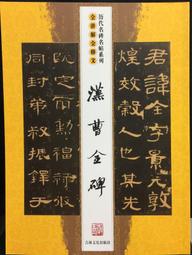 历代名碑名帖系列
漢曹全碑
君諱全字景完敦
煌效穀人也其先
既定爾勳福祿攸
同封弟叔振鐸
吉林文史出版社